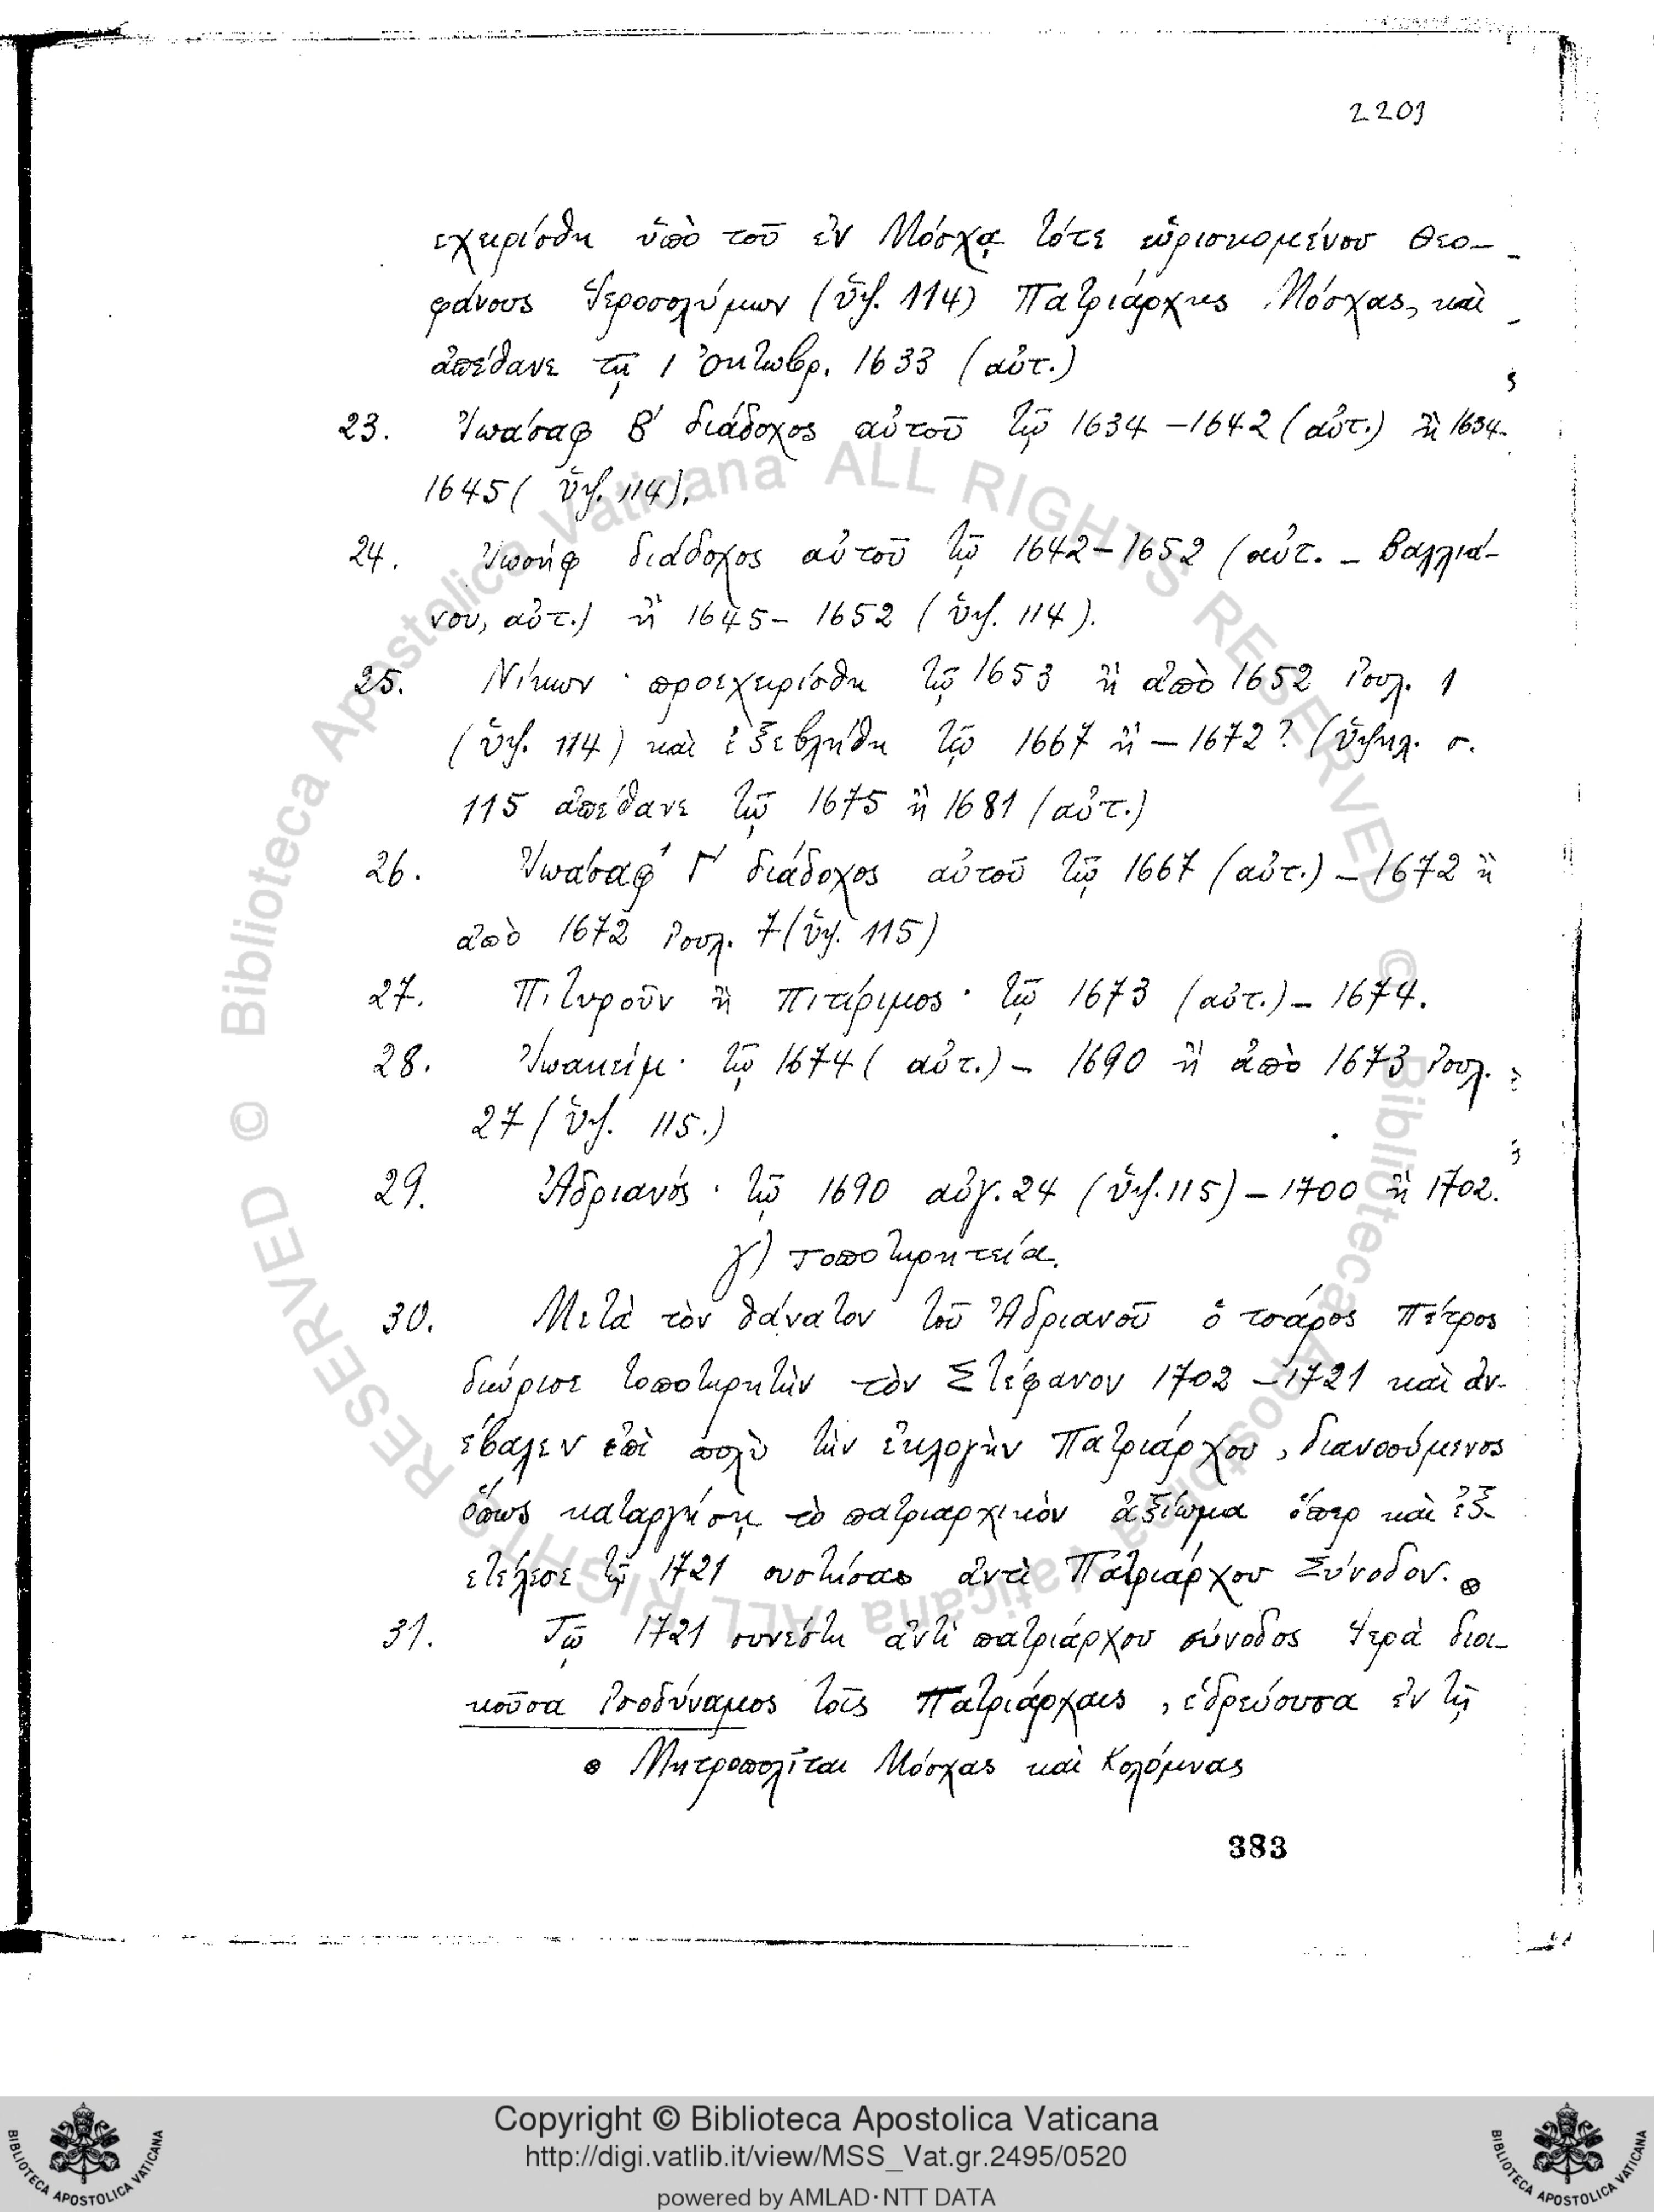 2203
εχειρίσθη ὑπὸ τοῦ ἐν Μόσχᾳ τότε εὑρισκομένου Θεο-
φάνους Ἱεροσολύμων (ὑψ. 114) Πατριάρχης Μόσχας, καὶ
ἀπέθανε τῇ 1 Ὀκτωβρ. 1633 (αὐτ.)
23. Ἰωάσαφ Β΄ διάδοχος αὐτοῦ τῷ 1634 – 1642 (αὐτ.) ἢ 1634-
1645 ( ὑψ. 114).
24. Ἰωσήφ διάδοχος αὐτοῦ τῷ 1642 – 1652 (αὐτ. – Βαλλιά-
νου, αὐτ.) ἢ 1645 – 1652 (ὑψ. 114).
25. Νίκων · προεχειρίσθη τῷ 1653 ἢ ἀπὸ 1652 Ἰουλ. 1
(ὑψ. 114) καὶ ἐξεβλήθη τῷ 1667 ἢ – 1672? (ὑψηλ. σ.
115 ἀπέθανε τῷ 1675 ἢ 1681 (αὐτ.)
26. Ἰωάσαφ Γ΄ διάδοχος αὐτοῦ τῷ 1667 (αὐτ.) – 1672 ἢ
ἀπὸ 1672 Ἰουλ. 7 (ὑψ. 115)
27. Πιτυροῦν ἢ Πιτίριμος · τῷ 1673 (αὐτ.) – 1674.
28. Ἰωακείμ · τῷ 1674 ( αὐτ.) – 1690 ἢ ἀπὸ 1673 Ἰουλ.
27 (ὑψ. 115.)
29. Ἀδριανός · τῷ 1690 αὐγ. 24 (ὑψ. 115) – 1700 ἢ 1702.
γ) Τοποτηρητεία.
30. Μετὰ τὸν θάνατον τοῦ Ἀδριανοῦ ὁ τσάρος Πέτρος
διώρισε τοποτηρητὴν τὸν Στέφανον 1702 – 1721 καὶ ἀν-
έβαλεν ἐπὶ πολὺ τὴν ἐκλογὴν Πατριάρχου, διανοούμενος
ὅπως καταργήσῃ τὸ πατριαρχικὸν ἀξίωμα ὅπερ καὶ ἐξ-
ετέλεσε τῷ 1721 συστήσας ἀντὶ Πατριάρχου Σύνοδον. ⊗
31. Τῷ 1721 συνέστη ἀντὶ πατριάρχου σύνοδος Ἱερὰ διοι-
κοῦσα ἰσοδύναμος τοῖς Πατριάρχαις, ἑδρεύουσα ἐν τῇ
⊗ Μητροπολῖται Μόσχας καὶ Κολόμνας
383
© Biblioteca Apostolica Vaticana ALL RIGHTS RESERVED © Biblioteca Apostolica Vaticana ALL RIGHTS RESERVED
Copyright © Biblioteca Apostolica Vaticana
http://digi.vatlib.it/view/MSS_Vat.gr.2495/0520
powered by AMLAD·NTT DATA
BIBLIOTECA APOSTOLICA VATICANA
BIBLIOTECA APOSTOLICA VATICANA